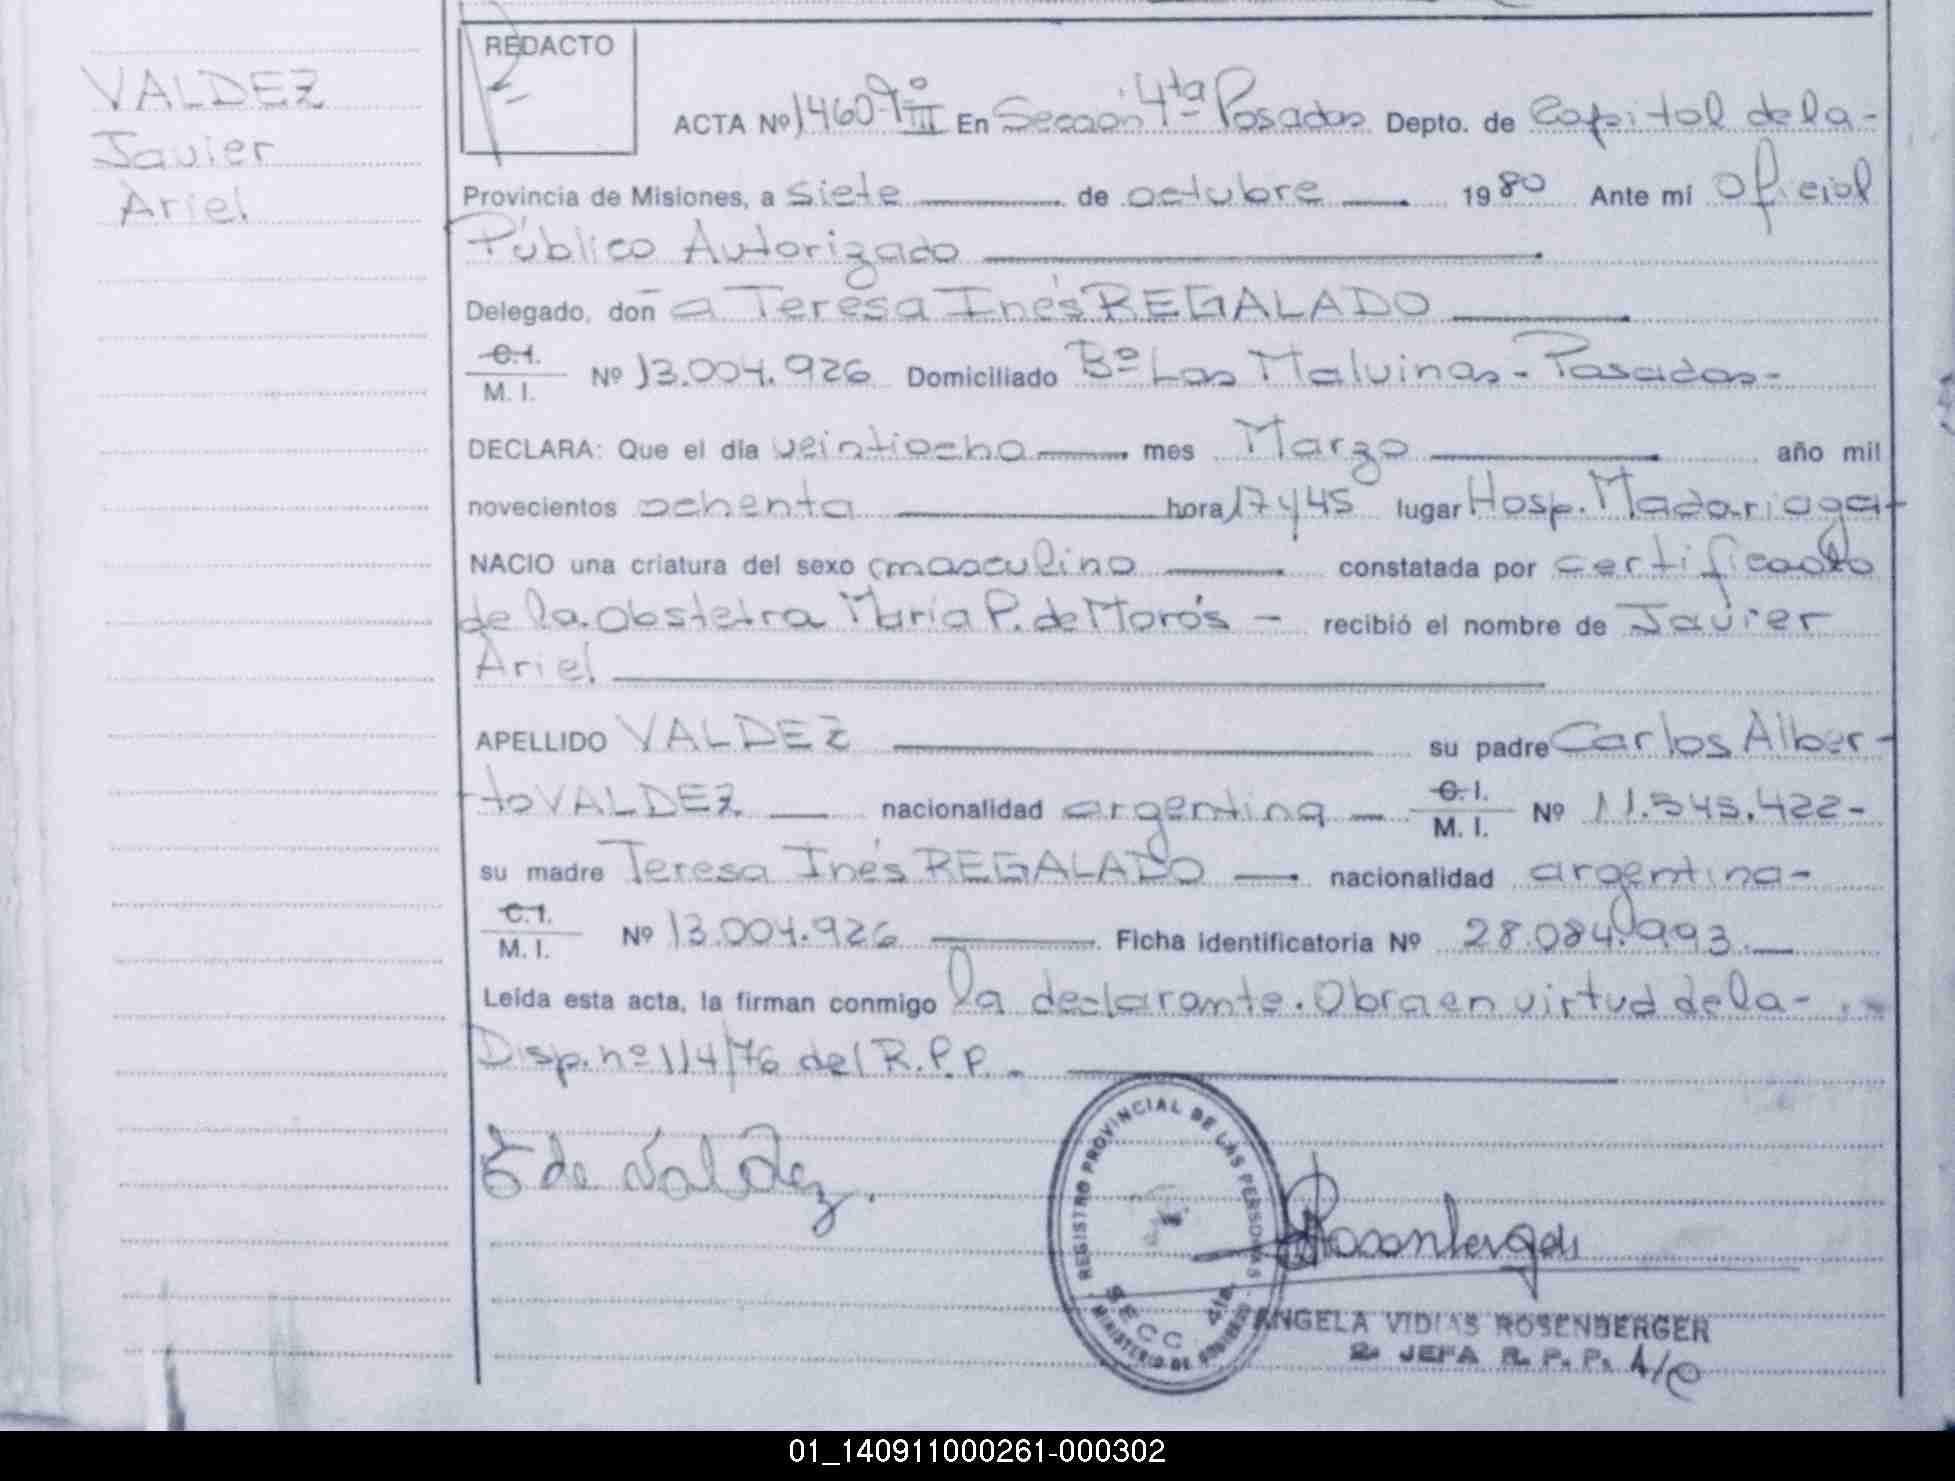 VALDEZ
Javier
Ariel
REDACTO
ACTA Nº 1460 Tº III En Sección 4ta Posadas Depto. de Capital de la-
Provincia de Misiones, a siete de octubre 1980 Ante mí Oficial
Público Autorizado
Delegado, don a Teresa Inés REGALADO
C.I.
M. I. Nº 13.004.926 Domiciliado Bº Las Malvinas - Posadas-
DECLARA: Que el día veintiocho mes Marzo año mil
novecientos ochenta hora 17 y 45 lugar Hosp. Madariaga-
NACIO una criatura del sexo masculino constatada por certificado
de la Obstetra María P. de Morós - recibió el nombre de Javier
Ariel
APELLIDO VALDEZ su padre Carlos Alber-
to VALDEZ nacionalidad argentina C.I.
M. I. Nº 11.545.422-
su madre Teresa Inés REGALADO nacionalidad argentina-
C.I.
M. I. Nº 13.004.926 Ficha identificatoria Nº 28.084.993.
Leída esta acta, la firman conmigo la declarante. Obra en virtud de la-
Disp. nº 114/76 del R.P.P. -
de Valdez.
REGISTRO PROVINCIAL DE LAS PERSONAS
SECC 4ta.
MINISTERIO DE GOBIERNO
Rosenberger
ANGELA VIDIAS ROSENBERGER
2a JEFA R. P. P. A/C
01_140911000261-000302